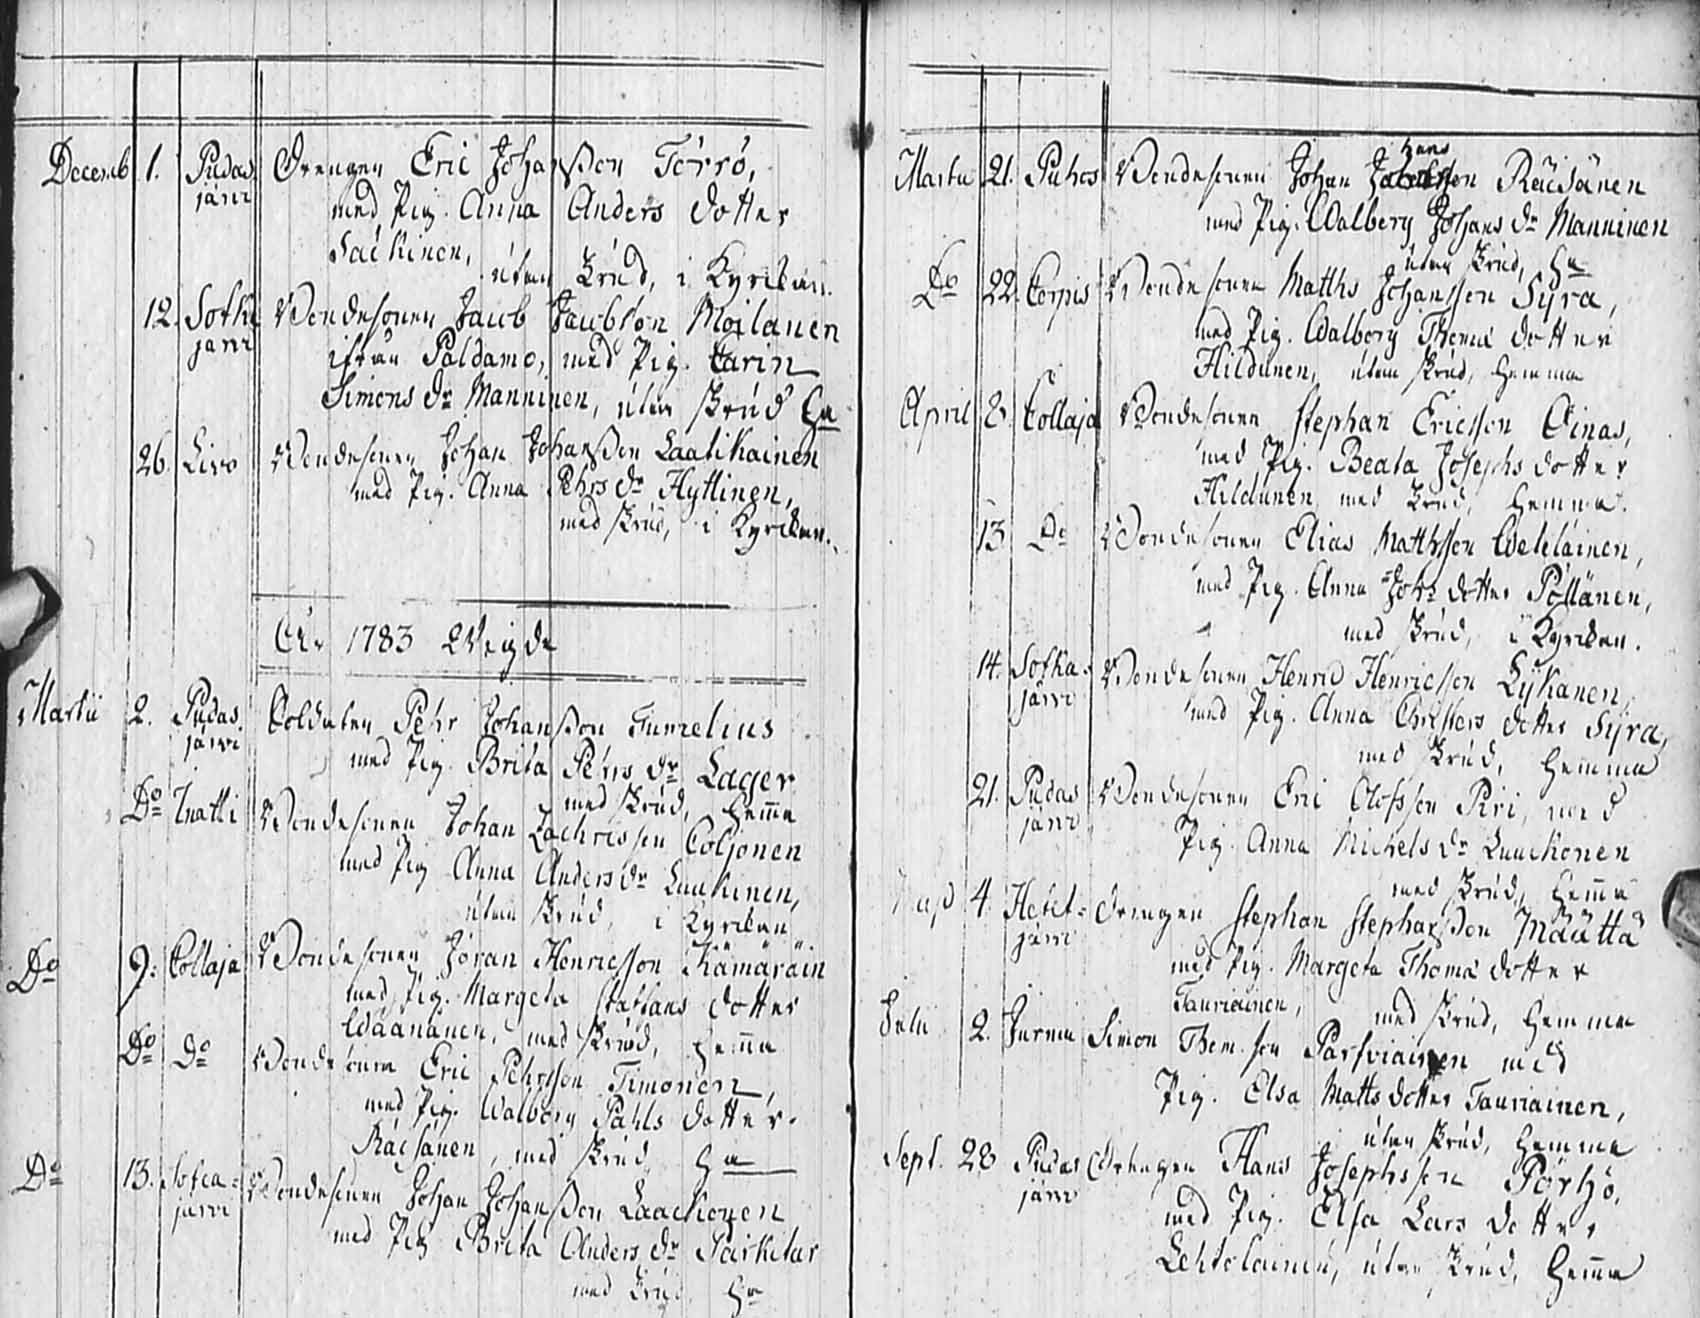 Decemb 1. Pudas järvi Drengen Eric Johansson Törrö,
med Pig. Anna Anders dotter
Säckinen, utan Skrud, i Kyrckan.
12. Sotka jarvi Bondesonen Jacob Jacobson Moilanen
ifrån Paldamo, med Pig. Carin
Simons dr Manninen, utan Skrud Ha
26. Livo Bondesonen Johan Johansson Laatikainen
med Pig. Anna Pehrs dr Hyttinen,
med Skrud, i Kyrckan.
År 1783 Wigde
Martii 2. Pudas järvi Soldaten Pehr Johansson Tumelius
med Pig. Brita Pehrs dr Lager
med Skrud, Hemma
Do Inatti Bondesonen Johan Zachrisson Coljonen
med Pig Anna Anders dr Luukinen,
utan Skrud, i Kyrckan
Do 9. Collaja Bondesonen Jöran Henricsson Kämäräin
med Pig. Margeta Staffans dotter
Wäänänen, med Skrud, Hemma
Do Do Bondesonen Eric Pehrsson Timonen,
med Pig. Walborg Påhls dotter
Räisänen, med Skrud, Ha
Do 13. Sotca= järvi Bondesonen Johan Johansson Laackonen
med Pig Brita Anders dr Parkitar
med Skrud Ha
Martii 21. Puhos Bondesonen Johan Hans son Räisänen
med Pig. Walborg Johans dr Manninen
utan Skrud, Ha
Do 22. Corpis Bondesonen Matths Johansson Syra,
med Pig. Walborg Thoma dotter
Hildunen, utan Skrud, Hemma
April 8. Collaja Bondesonen Stephan Ericsson Oinas,
med Pig. Beata Josephs dotter
Hildunen med Skrud, Hemma.
13 Do Bondesonen Elias Mattsson Wälläinen,
med Pig. Anna Johs dotter Pöllänen,
med Skrud, i Kyrckan.
14. Sotka= järvi Bondesonen Henric Henricsson Lykanen,
med Pig. Anna Christers dotter Syra,
med Skrud, Hemma
21. Pudas järvi Bondesonen Eric Olofsson Piri, med
Pig. Anna Michels dr Luuckonen
med Skrud, Hemma
4. Hetet= järvi Drengen Stephan Stephansson Määttä
med Pig. Margeta Thoma dotter
Tauriainen, med Skrud, Hemma
Julii 2. Jurmu Simon Thom. son Parsviainen med
Pig. Elsa Matts dotter Tauriainen,
utan Skrud, Hemma
Sept. 28 Pudas järvi Drengen Hans Josephsson Pörhö,
med Pig. Elsa Lars dotter
Lehtolainen, utan Skrud, Hemma